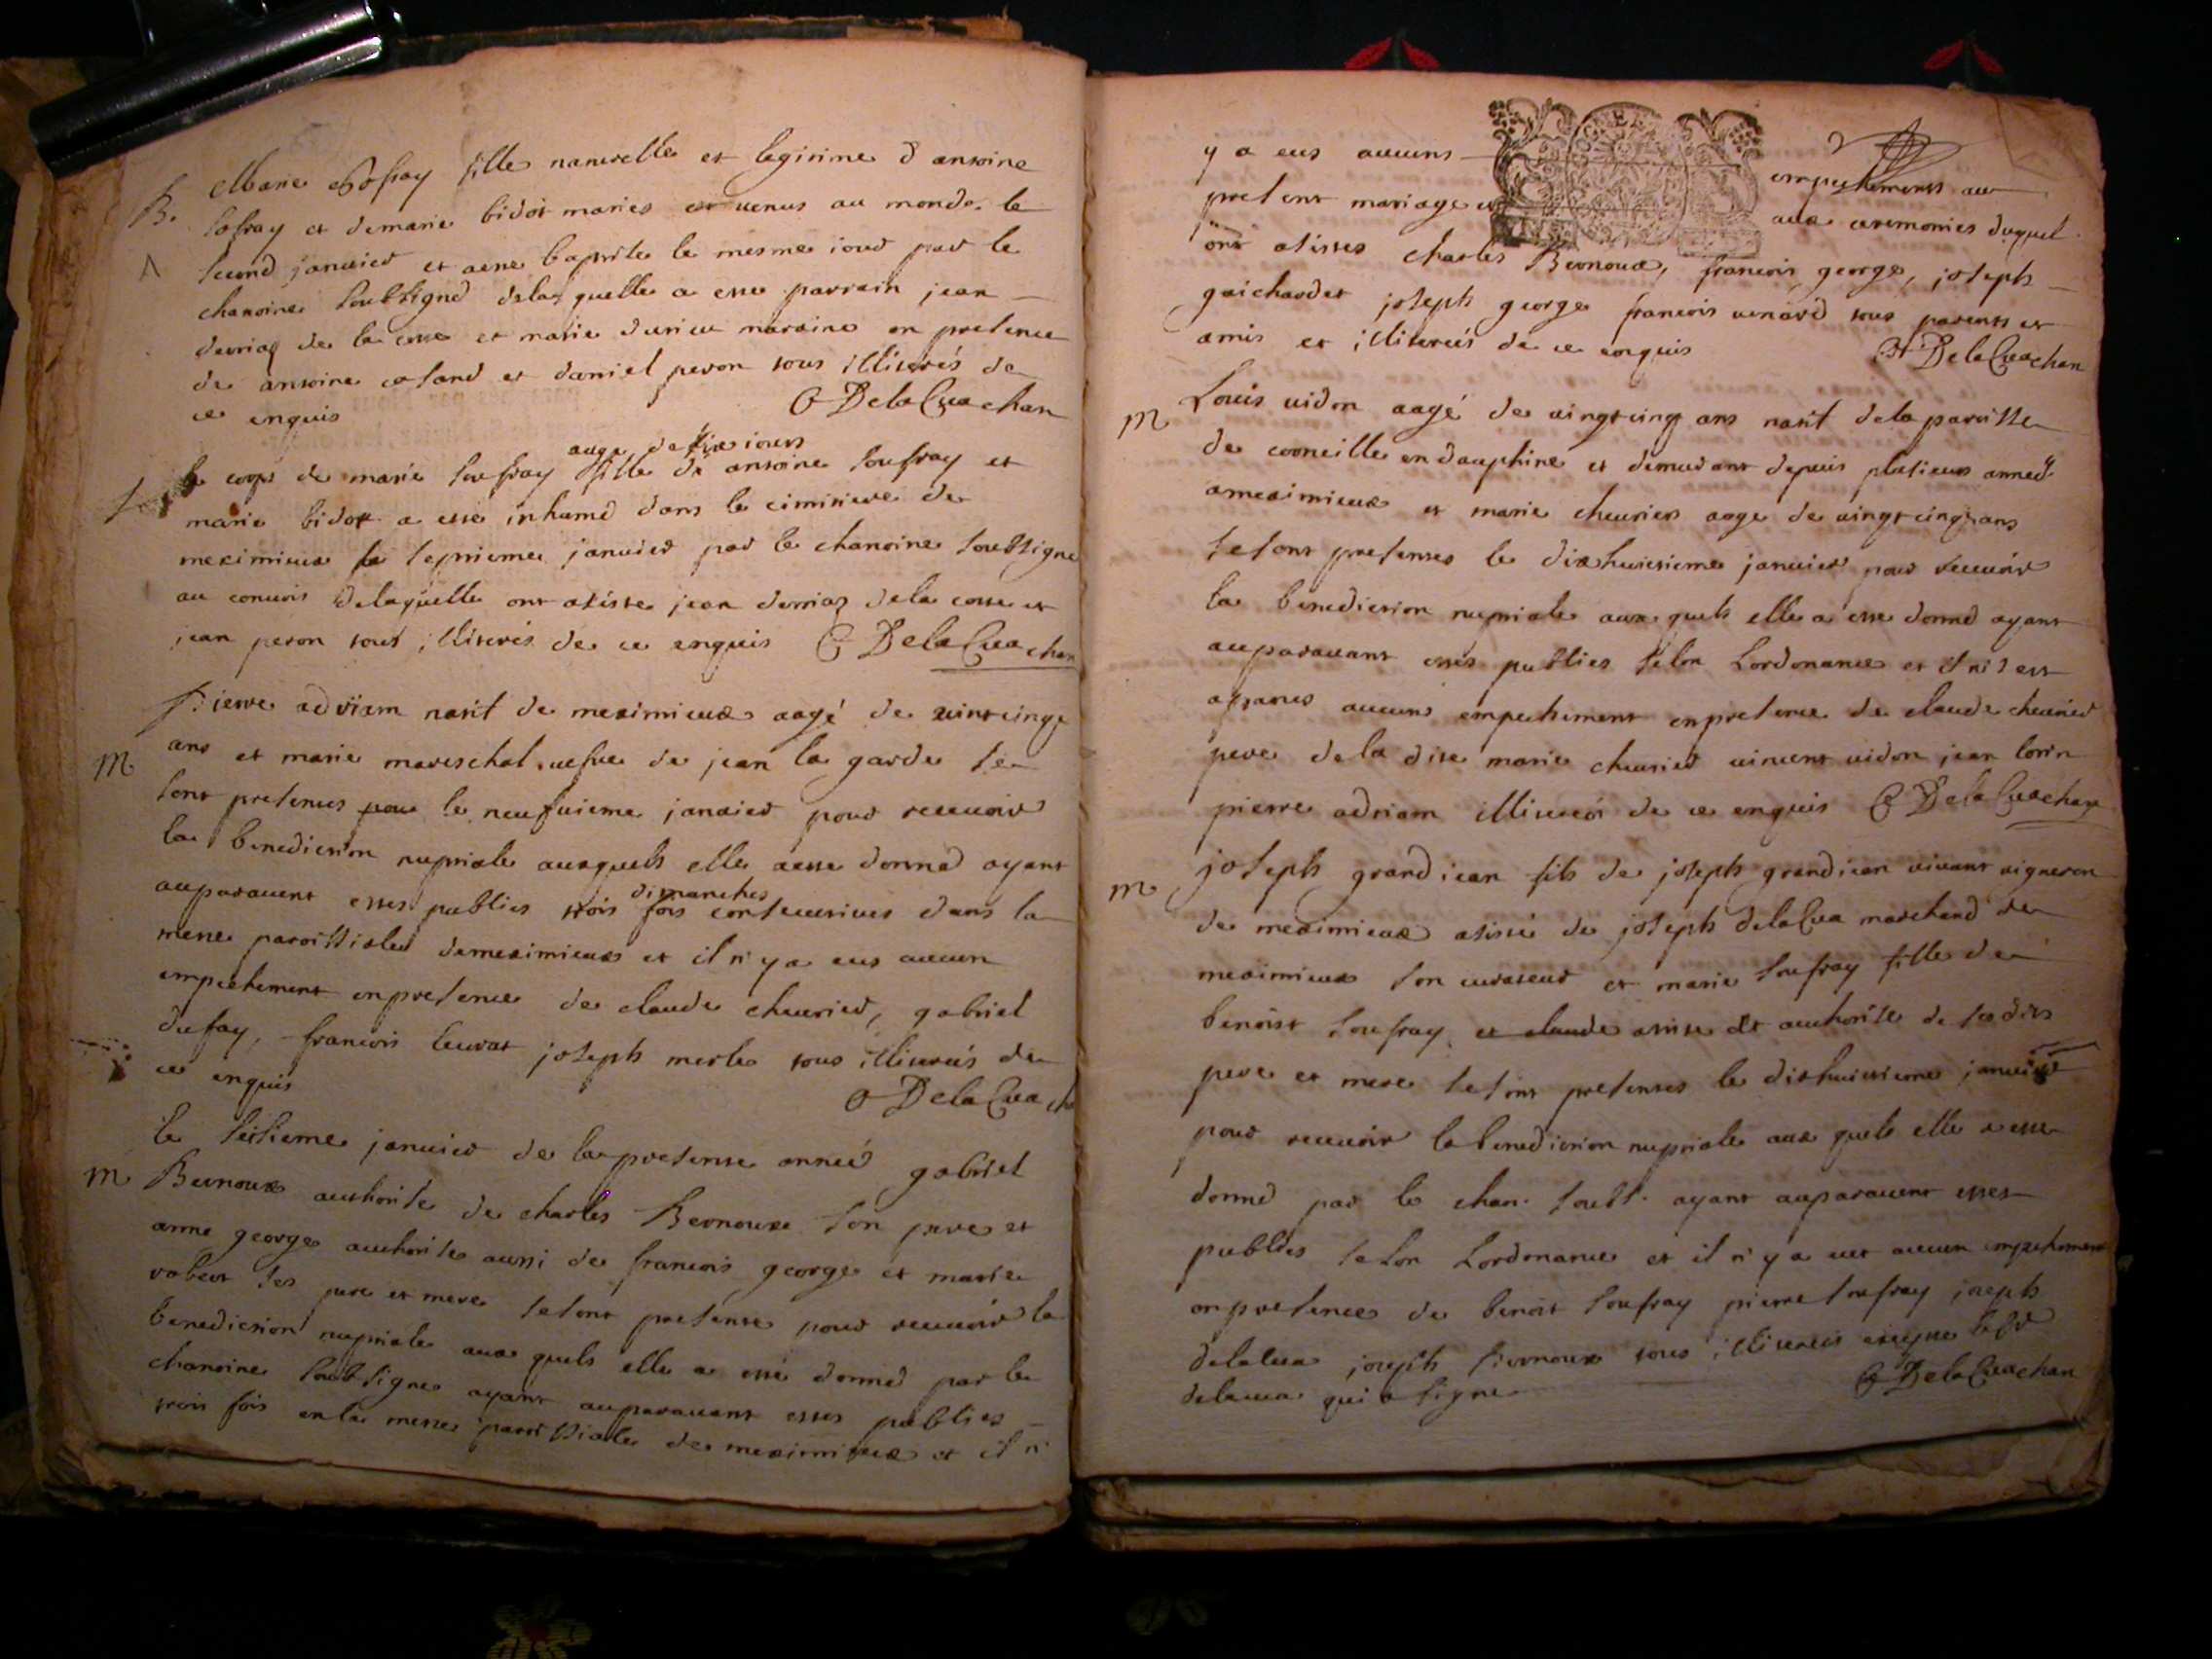 B. Marie Sofray fille naturelle et legitime d antoine
sofray et de marie bidot maries est venus au monde le
second janvier et aesté baptisée le mesme iour par le
chanoine soubsigné de laquelle a esté parrain jean
derriaz de la coste et marie maraine en presence
de antoine et daniel peron tous illiterés de
ce enquis O Delacua chan
aagé de six iours
le corps de marie soufray fille de antoine soufray et
marie bidot a esté inhumé dans le cimitiere de
meximieux le septieme janvier par le chanoine soubsigne
au convois de laquelle ont assisté jean derriaz de la coste et
jean peron tous illiterés de ce enquis Delacua chan
Pierre adriam natif de meximieux aagé de vintcinqt
M ans et marie mareschal vefve de jean la garde se
sont presentes le neufuieme janvier pour recevoir
la benediction nuptiale auxquels elle aesté donné ayant
dimanches
auparavent estes publies trois fois consecutives dans la
messe paroissiale de meximieux et il n y a eus aucun
empechement en presence de claude chevrier, gabriel
dufay, francois joseph merle tous illiterés de
ce enquis O Delacua ch
le seisieme janvier de la presente année gabriel
M Bernoux authorisé de charles Bernoux son pere et
anne george authorisée aussi de francois george et marie
robert ses pere et mere se sont presentes pour recevoir la
benediction nuptiale aux quels elle a esté donné par le
chanoine soubsigne ayant auparavant estes publies
trois fois en la messe paroissiale de meximieux et il n
y a eus aucuns empechements au
present mariage et aux ceremonies duquel
ont assistes charles Bernoux, francois george, joseph
guichardet joseph george francois venard tous parents et
amis et illiterés de ce enquis Delacua chan
M Louis vidon aagé de vingtcinq ans natif de la paroisse
de corneille en dauphiné et demeurant depuis plusieurs année
a meximieux et marie chevrier aage de vingtcinq ans
se sont presentes le dixhuictieme janvier pour recevoir
la benediction nuptiale aux quels elle a esté donné ayant
auparavant estés publies selon Lordonance et il n i est
aparus aucuns empechement en presence de claude chevrier
pere de la dite marie chevrier vincent vidon jean
pierre adriam illiterés de ce enquis Delacua chan
M joseph grandjean fils de joseph grandjean vivant vigneron
de meximieux assisté de joseph delacua marchand de
meximieux son curateur et marie soufray fille de
benoist soufray et claude assistée et authorisée de sesdits
pere et mere se sont presentes le dixhuictieme janvier
pour recevoir la benediction nuptiale aux quels elle a esté
donné par le chan. soubs. ayant auparavent estes
publies selon Lordonance et il n y a eut aucun empechement
en presence de benoist soufray pierre soufray joseph
delacua joseph bernoux tous illiterés excepté ledt
delacua qui a signe Delacua chan